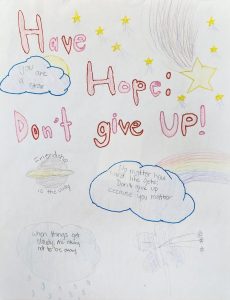 Have
Hope:
Don't give UP!
you are
a star
Friendship
is the way
No matter how
hard life gets
Don't give up
because you matter
when things get
cloudy